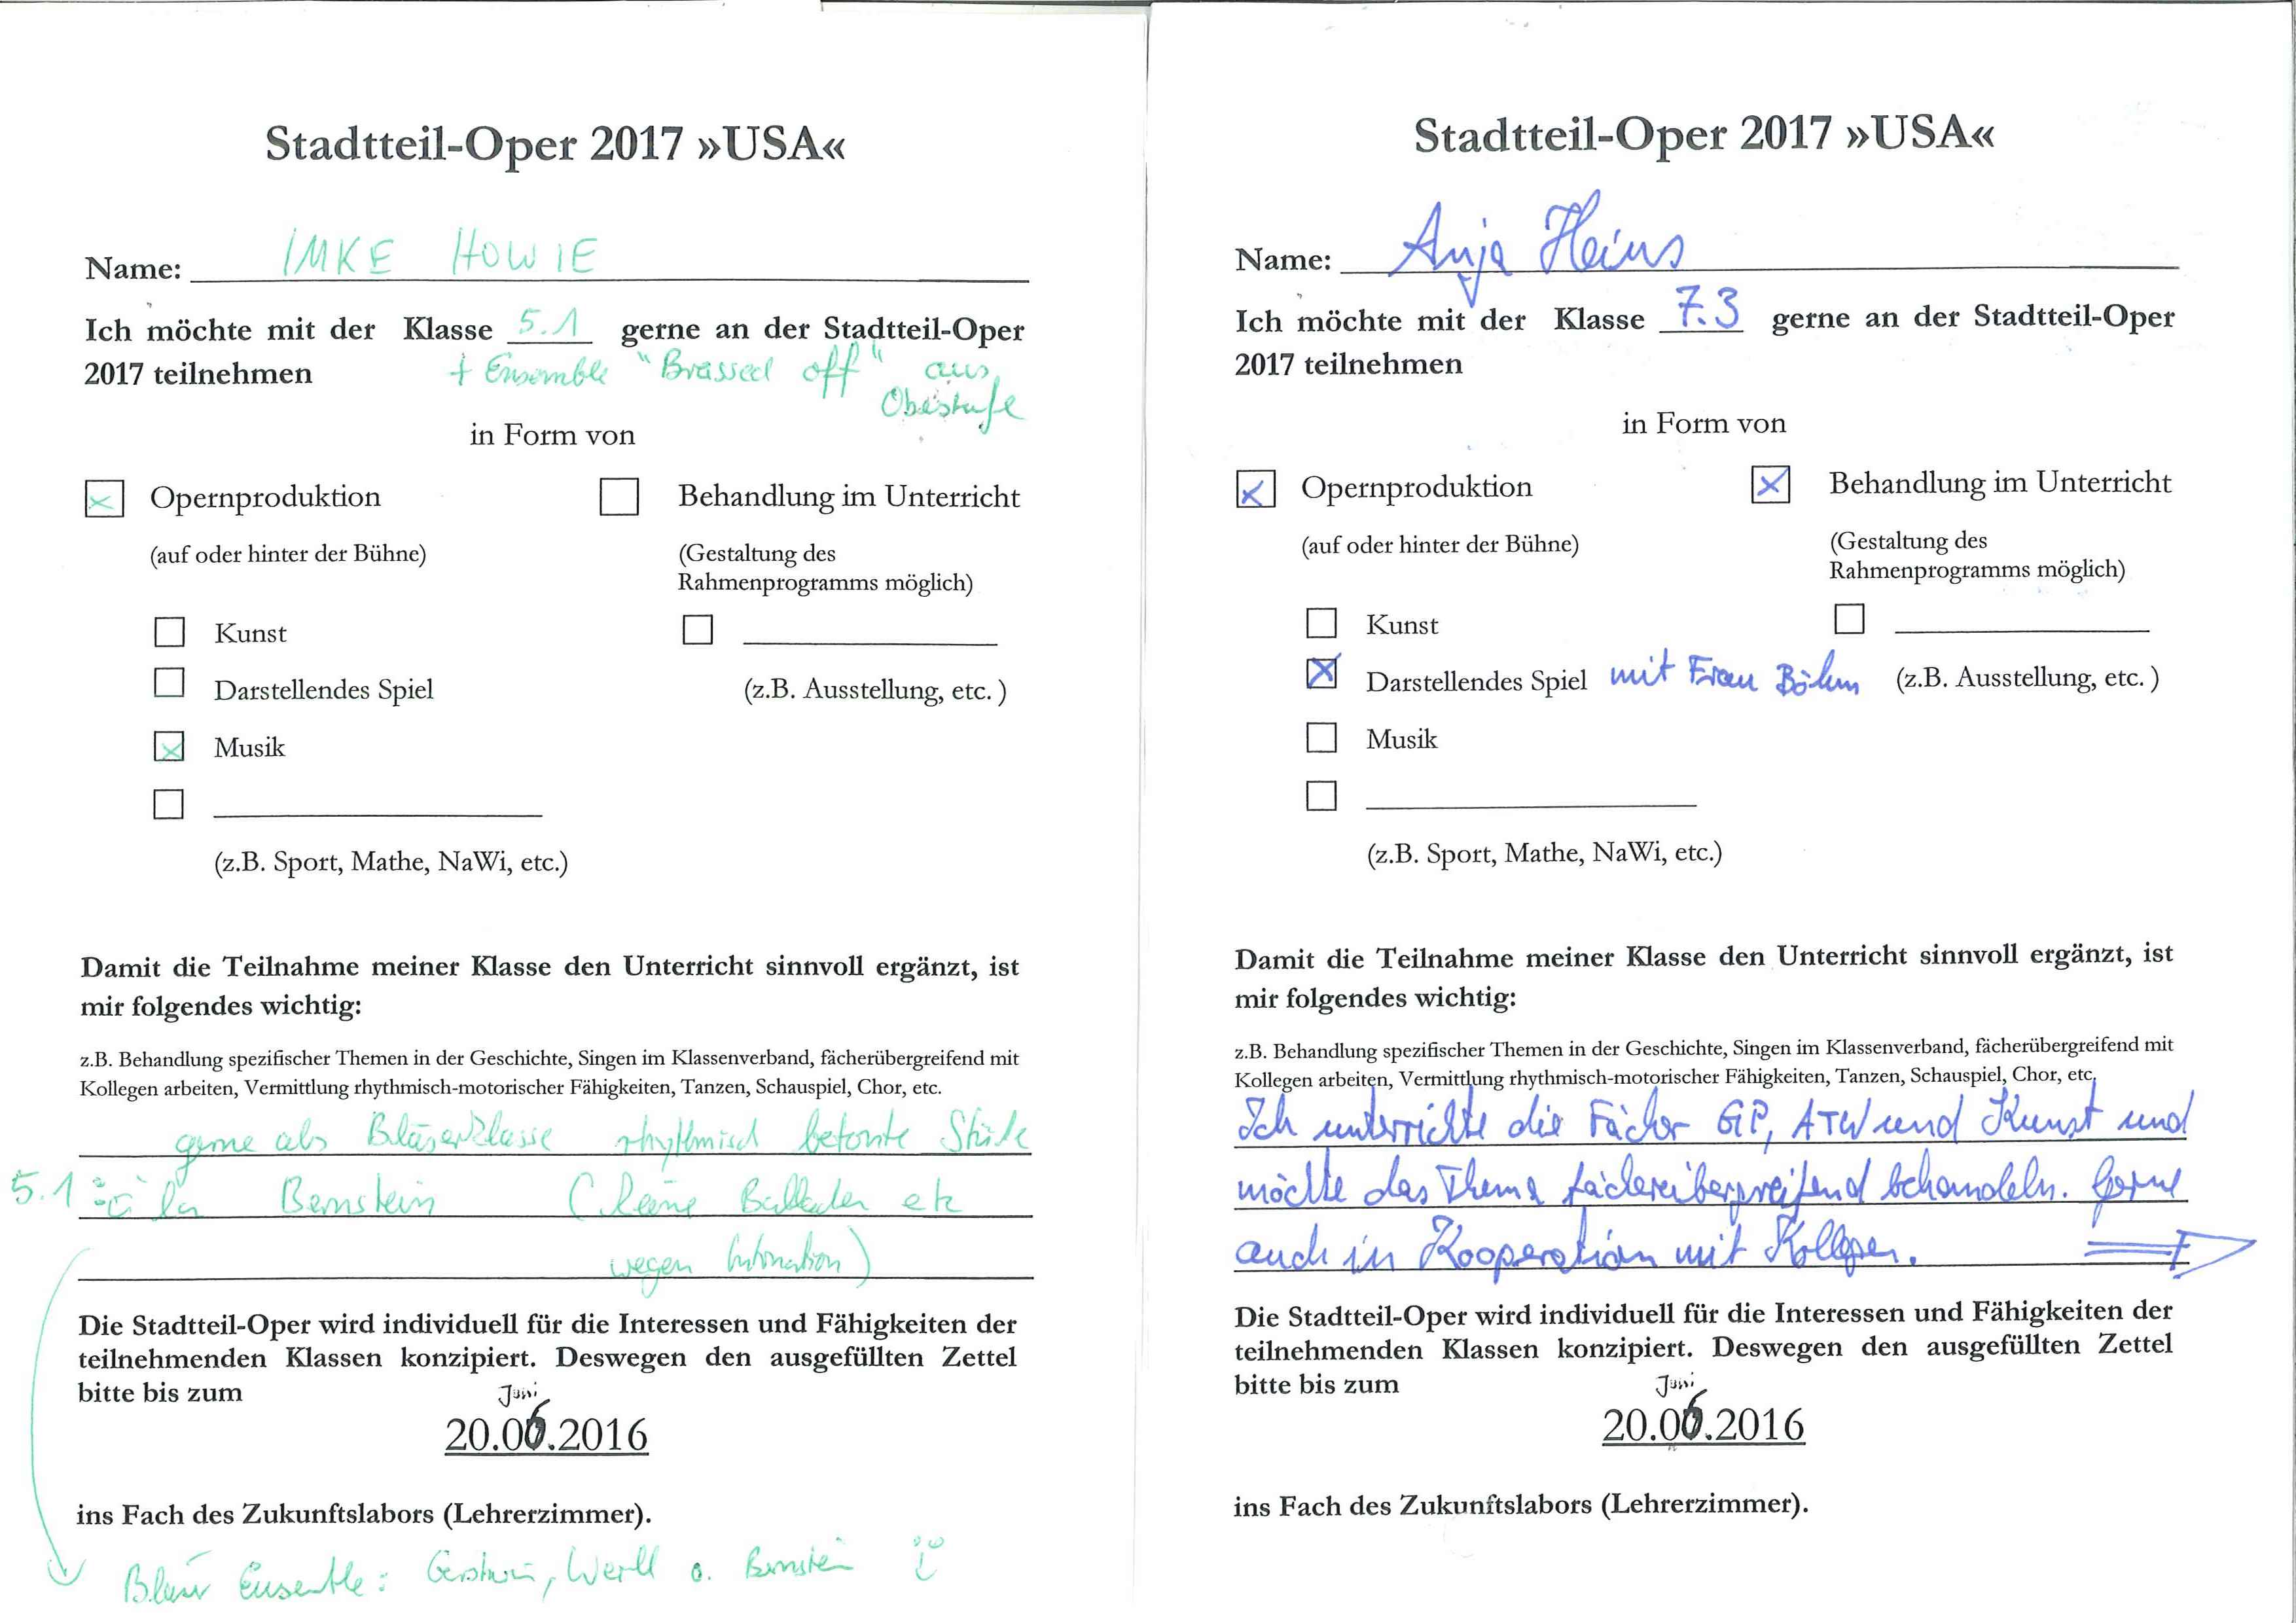 Stadtteil-Oper 2017 »USA«
Name: IMKE HOWIE
Ich möchte mit der Klasse 5.1 gerne an der Stadtteil-Oper
2017 teilnehmen + Ensemble "Brassed off" aus
Oberstufe
in Form von
Opernproduktion
Behandlung im Unterricht
(auf oder hinter der Bühne)
(Gestaltung des
Rahmenprogramms möglich)
Kunst
Darstellendes Spiel
(z.B. Ausstellung, etc. )
Musik
(z.B. Sport, Mathe, NaWi, etc.)
Damit die Teilnahme meiner Klasse den Unterricht sinnvoll ergänzt, ist
mir folgendes wichtig:
z.B. Behandlung spezifischer Themen in der Geschichte, Singen im Klassenverband, fächerübergreifend mit
Kollegen arbeiten, Vermittlung rhythmisch-motorischer Fähigkeiten, Tanzen, Schauspiel, Chor, etc.
gerne als Bläserklasse rhythmisch betonte Stücke
5.1: à la Bernstein (keine Balladen etc
wegen Intonation)
Die Stadtteil-Oper wird individuell für die Interessen und Fähigkeiten der
teilnehmenden Klassen konzipiert. Deswegen den ausgefüllten Zettel
bitte bis zum
Juni
20.06.2016
ins Fach des Zukunftslabors (Lehrerzimmer).
Bläser Ensemble: Gershwin, Weill o. Bernstein
Stadtteil-Oper 2017 »USA«
Name: Anja Heins
Ich möchte mit der Klasse 7.3 gerne an der Stadtteil-Oper
2017 teilnehmen
in Form von
Opernproduktion
Behandlung im Unterricht
(auf oder hinter der Bühne)
(Gestaltung des
Rahmenprogramms möglich)
Kunst
Darstellendes Spiel mit Frau Böhm
(z.B. Ausstellung, etc. )
Musik
(z.B. Sport, Mathe, NaWi, etc.)
Damit die Teilnahme meiner Klasse den Unterricht sinnvoll ergänzt, ist
mir folgendes wichtig:
z.B. Behandlung spezifischer Themen in der Geschichte, Singen im Klassenverband, fächerübergreifend mit
Kollegen arbeiten, Vermittlung rhythmisch-motorischer Fähigkeiten, Tanzen, Schauspiel, Chor, etc.
Ich unterrichte die Fächer GP, ATW und Kunst und
möchte das Thema fächerübergreifend behandeln. Gerne
auch in Kooperation mit Kollegen.
Die Stadtteil-Oper wird individuell für die Interessen und Fähigkeiten der
teilnehmenden Klassen konzipiert. Deswegen den ausgefüllten Zettel
bitte bis zum
Juni
20.06.2016
ins Fach des Zukunftslabors (Lehrerzimmer).